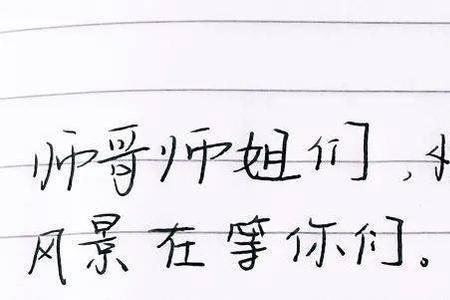 师哥师姐们，
风景在等你们。